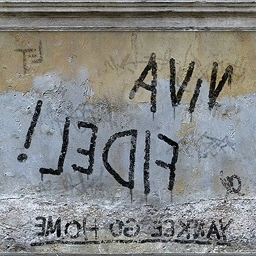 VIVA
FIDEL!
YANKEE GO HOME